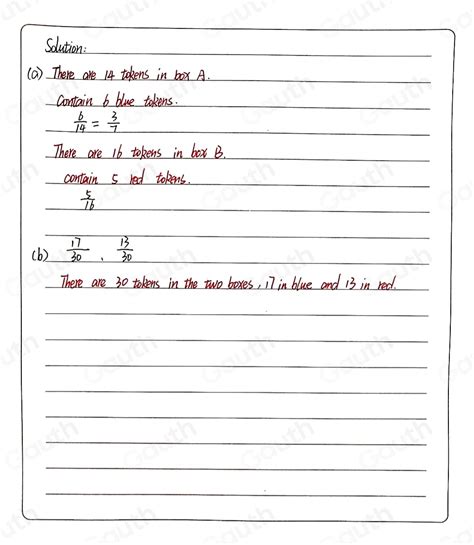 Solution:
(a) There are 14 tokens in box A.
Contain 6 blue tokens.
6/14 = 3/7
There are 16 tokens in box B.
contain 5 red tokens.
5/16
(b) 17/30 , 13/30
There are 30 tokens in the two boxes, 17 in blue and 13 in red.